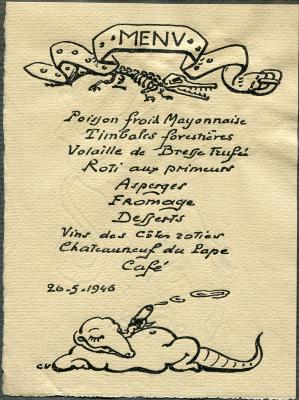 MENU
Poisson froid Mayonnaise
Timbales forestières
Volaille de Bresse truffée
Roti aux primeurs
Asperges
Fromage
Desserts
Vins des Côtes roties
Chateauneuf du Pape
Café
26-5-1946